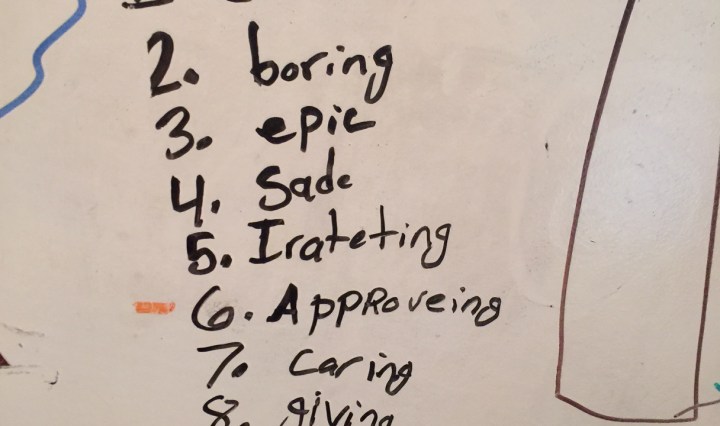 2. boring
3. epic
4. Sade
5. Irateting
6. Approveing
7. Caring
8. giving